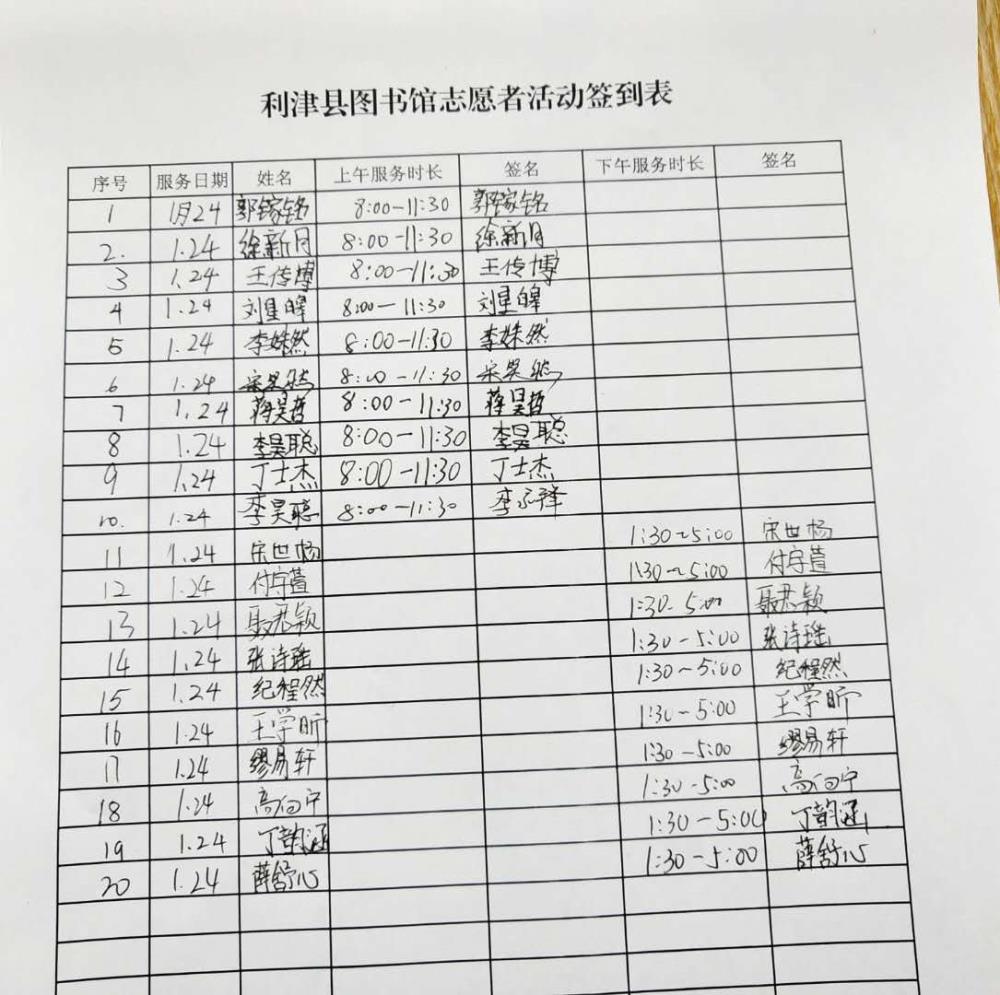 利津县图书馆志愿者活动签到表
序号 服务日期 姓名 上午服务时长 签名 下午服务时长 签名
1 1月24 郭镓铭 8:00-11:30 郭镓铭
2. 1.24 徐新月 8:00-11:30 徐新月
3 1.24 王传博 8:00-11:30 王传博
4 1.24 刘星皞 8:00-11:30 刘星皞
5 1.24 李姝然 8:00-11:30 李姝然
6 1.24 宋昊 8:00-11:30 宋昊
7 1.24 蒋昊哲 8:00-11:30 蒋昊哲
8 1.24 李昊聪 8:00-11:30 李昊聪
9 1.24 丁士杰 8:00-11:30 丁士杰
10. 1.24 李昊聪 8:00-11:30 李永锋
11 1.24 宋世杨 1:30~5:00 宋世杨
12 1.24 付宇萱 1:30~5:00 付宇萱
13 1.24 聂君颖 1:30-5:00 聂君颖
14 1.24 张诗瑶 1:30-5:00 张诗瑶
15 1.24 纪程然 1:30~5:00 纪程然
16 1.24 王学昕 1:30-5:00 王学昕
17 1.24 缪易轩 1:30-5:00 缪易轩
18 1.24 高向宁 1:30-5:00 高向宁
19 1.24 丁韵涵 1:30-5:00 丁韵涵
20 1.24 薛舒心 1:30-5:00 薛舒心